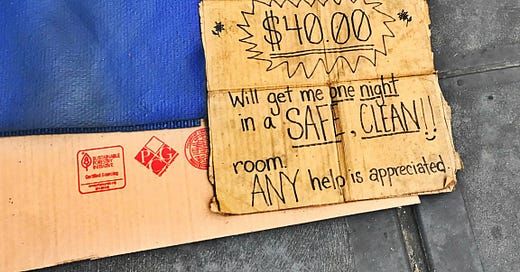 $40.00
Will get me one night
in a SAFE, CLEAN!!
room.
ANY help is appreciated
SUSTAINABLE
FORESTRY
INITIATIVE
Certified Sourcing
PCG